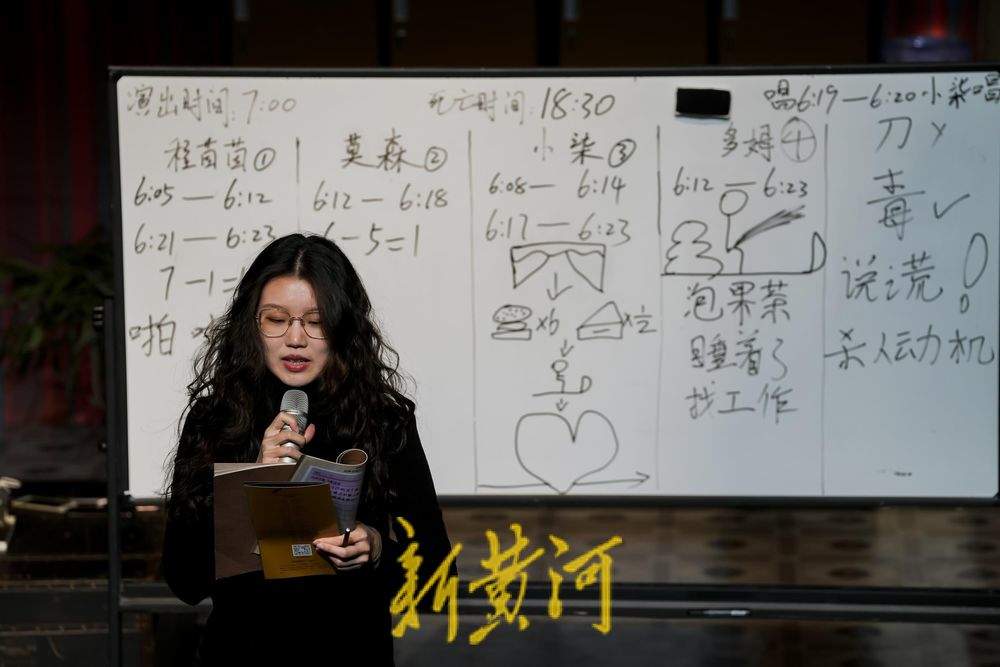 演出时间:7:00
死亡时间:18:30
唱6:19—6:20小柒唱
程苗苗①
6:05—6:12
6:21—6:23
7-1=
啪
莫森②
6:12—6:18
6-5=1
小柒③
6:08—6:14
6:17—6:23
×6
×1/2
多姆④
6:12—6:23
泡果茶
睡着了
找工作
刀×
毒✓
说谎!
杀人动机
新黄河